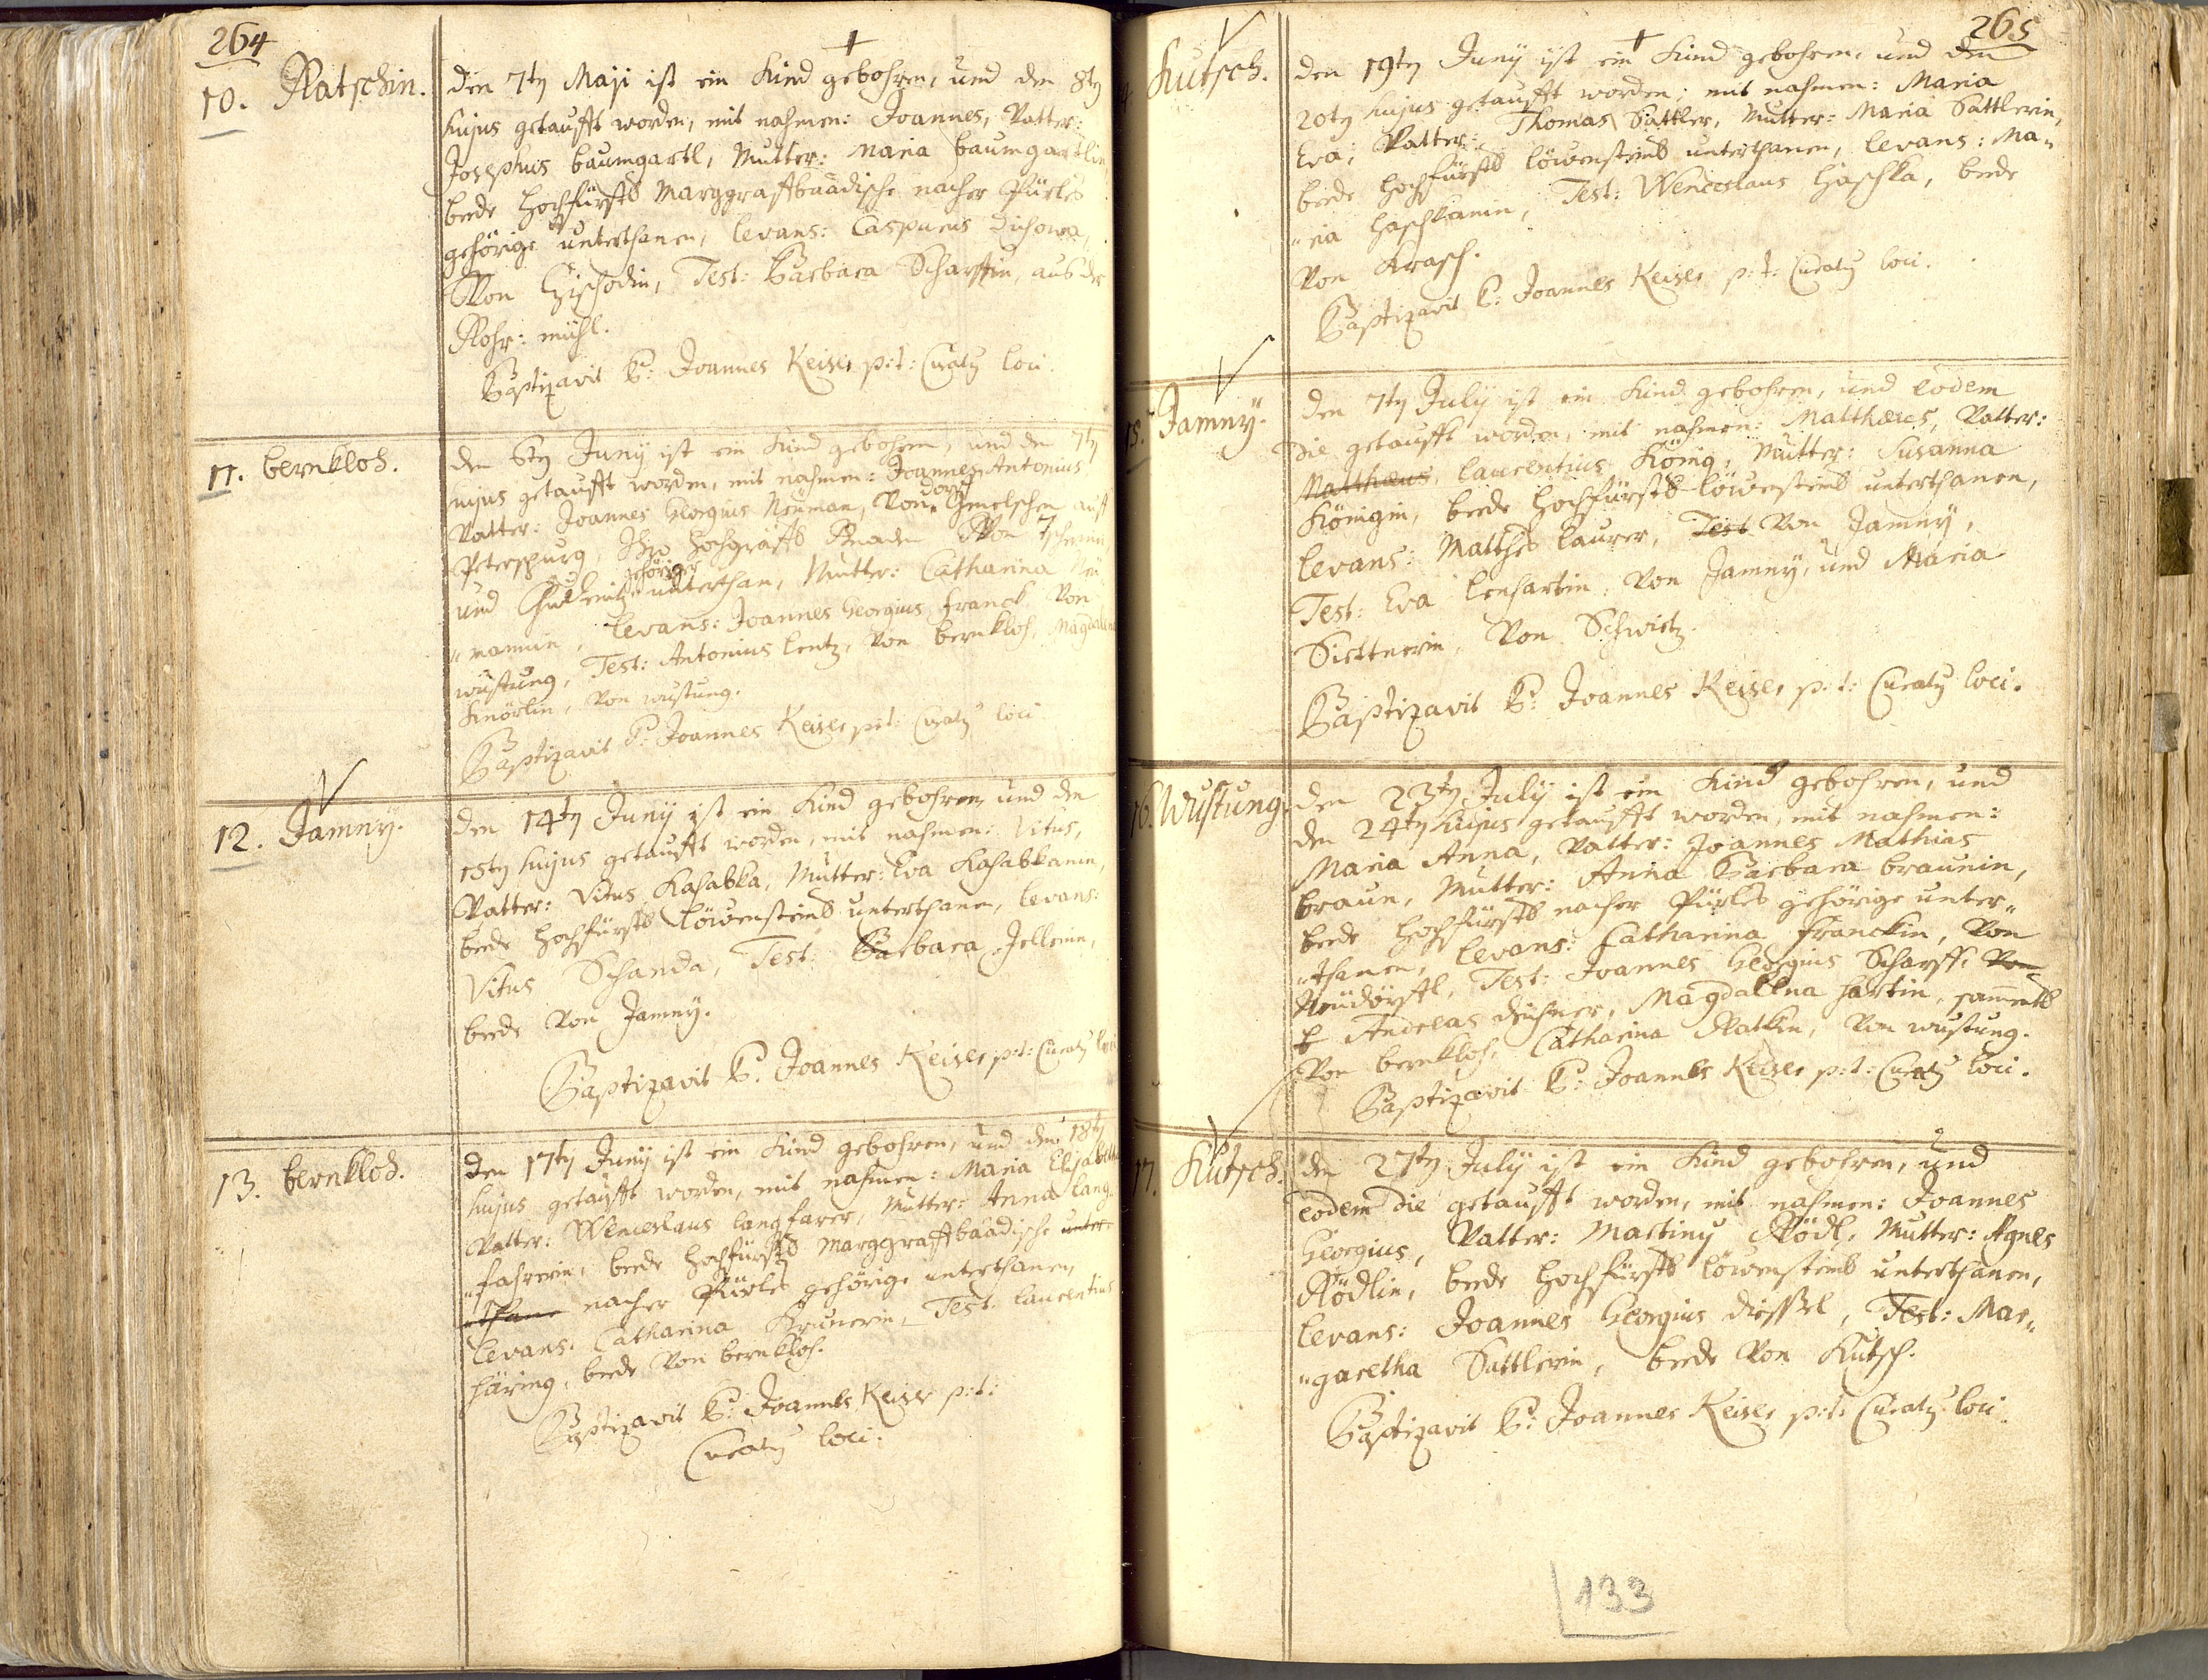 264
10. Ratschin.
den 7ty Maji ist ein Kind gebohren, und den 8ty
hujus getaufft worden, mit nahmen: Joannes, Vatter:
Josephus baumgartl, Mutter: Maria baumgartlin,
beede Hochfürstl Marggraffbaadische nacher Pürles
gehörige unterthanen, levans: Casparus Dichowa,
Von Chischodin, Test: Barbara Scharffin, aus der
Rohr: mühl.
Baptizavit P: Joannes Keiser p:t: Curaty loci.
11. bernkloh.
den 6ty Juny ist ein Kind gebohren, und den 7ty
hujus getaufft worden, mit nahmen: Joannes Antonius
Vatter: Joannes Georgius Neuman, Von dorff Gmelschen auff
Peterspurg, Ihro Hochgräffl Gnaden Von Tschernin
und Chudenitz gehöriger unterthan, Mutter: Catharina Neu
"manin, levans: Joannes Georgius Franck Von
wustung, Test: Antonius lentz, Von bernkloh, Magdalena
Knörlin, Von wustung.
Baptizavit P: Joannes Keiser p:t: Curaty loci
12. Jamny.
den 14ty Juny ist ein Kind gebohren, und den
15ty hujus getaufft worden, mit nahmen: Vitus,
Vatter: Vitus Kahabka, Mutter: Eva Kahabkanin,
beede Hochfürstl Löwensteinl unterthanen, levans:
Vitus Schanda, Test: Barbara Jellenin,
beede Von Jamny.
Baptizavit P: Joannes Keiser p:t: Curaty loci
13. bernkloh.
den 17ty Juny ist ein Kind gebohren, und den 18ty
hujus getaufft worden, mit nahmen: Maria Elisabetha
Vatter: Wenceslaus langfarer, Mutter: Anna lang"
"fahrerin, beede Hochfürstl Marggraffbaadische unter"
"thane nacher Pürles gehörige unterthanen,
levans: Catharina Krunerin, Test: laurentius
Häring, beede Von bernkloh.
Baptizavit P: Joannes Keiser p:t:
Curaty loci.
265
Kutsch.
den 19ty Juny ist ein Kind gebohren, und den
20ty hujus getaufft worden, mit nahmen: Maria
Eva, Vatter: Thomas Sattler, Mutter: Maria Sattlerin,
beede Hochfürstl löwensteinl unterthanen, levans: Ma"
"ria Haschkanin, Test: Wenceslaus Haschka, beede
Von Krasch.
Baptizavit P: Joannes Keiser p:t: Curaty loci.
15. Jamny.
den 7ty July ist ein Kind gebohren, und eodem
Die getaufft worden, mit nahmen: Matthaeus, Vatter:
Matthaeus, laurentius König, Mutter: Susanna
Königin, beede Hochfürstl löwensteinl unterthanen,
levans: Matthes laurer, Test Von Jamny,
Test: Eva lenhartin, Von Jamny, und Maria
Siettnerin, Von Schwitz.
Baptizavit P: Joannes Keiser p:t: Curaty loci.
16. Wustung.
den 23ty July ist ein Kind gebohren, und
den 24ty hujus getaufft worden, mit nahmen:
Maria Anna, Vatter: Joannes Mathias
braun, Mutter: Anna Barbara braunin,
beede Hochfürstl nacher Pürles gehörige unter"
"thanen, levans: Catharina Franckin, Von
Neudörffl, Test: Joannes Georgius Scharff, Von
Andreas Michner, Magdalena Hartin, samentl
Von bernkloh, Catharina Rattin, Von wustung.
Baptizavit P: Joannes Keiser p:t: Curaty loci.
17. Kutsch.
den 27ty July ist ein Kind gebohren, und
eodem die getaufft worden, mit nahmen: Joannes
Georgius, Vatter: Martiny Rödl, Mutter: Agnes
Rödlin, beede Hochfürstl löwensteinl unterthanen,
levans: Joannes Georgius Diessel, Test: Mar"
"garetha Sattlerin, beede Von Kutsch.
Baptizavit P: Joannes Keiser p:t: Curaty loci.
133